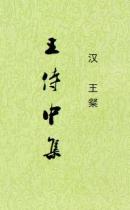 汉 王粲
王侍中集